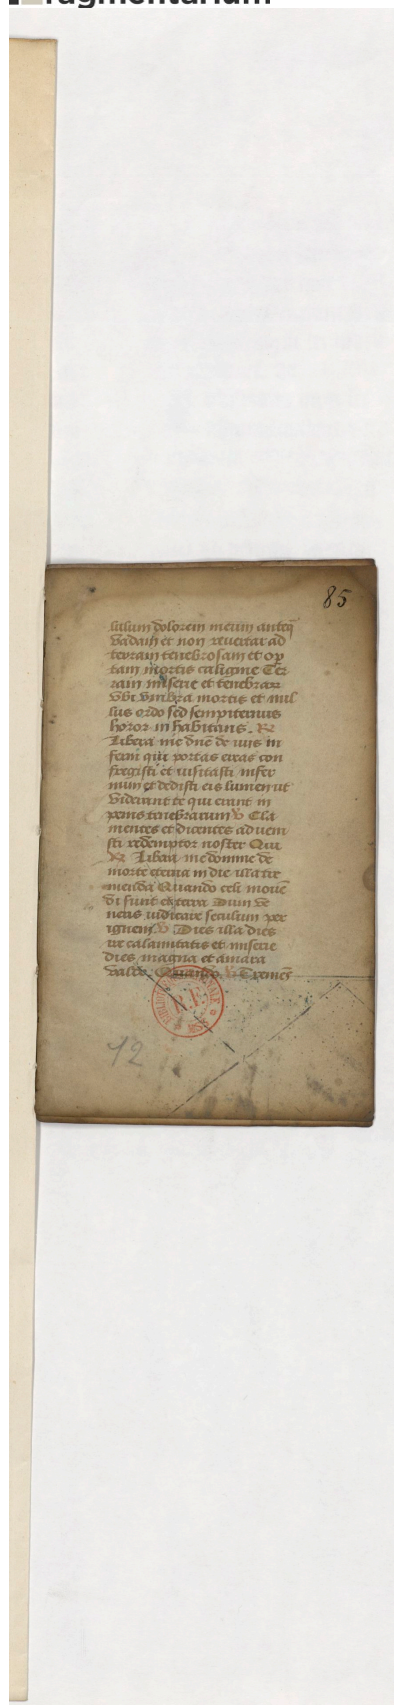 fragmentarium
85
lulum dolorem meum anteq̄
vadam et non revertar ad
terram tenebrosam et op
tam mortis caligine Ter
ram miserie et tenebrarꝝ
vbi vmbra mortis et nul
lus ordo sed sempiternus
horor in habitans. R
Libera me dñe de viis in
ferni qui portas ereas con
fregisti et visitasti infer
num et dedisti eis lumen ut
viderent te qui erant in
penis tenebrarum v Cla
mentes et dicentes adveni
sti redemptor noster Qui
R Libera me domine de
morte eterna in die illa tre
menda Quando celi movē
di sunt et terra Dum ve
neris iudicare seculum per
ignem v Dies illa dies
ire calamitatis et miserie
dies magna et amara
valde. Quando. v Tremēs
BIBLIOTHÈQUE NATIONALE
R.F.
MSS
12